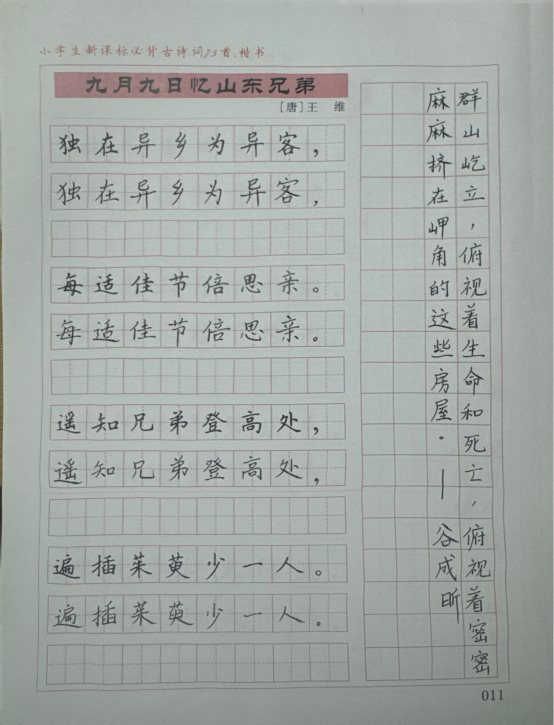 小学生新课标必背古诗词75首.楷书
九月九日忆山东兄弟
[唐]王 维
独在异乡为异客，
独在异乡为异客，
每逢佳节倍思亲。
每逢佳节倍思亲。
遥知兄弟登高处，
遥知兄弟登高处，
遍插茱萸少一人。
遍插茱萸少一人。
群山屹立，俯视着生命和死亡，俯视着密密
麻麻挤在岬角的这些房屋。—谷成昕
011